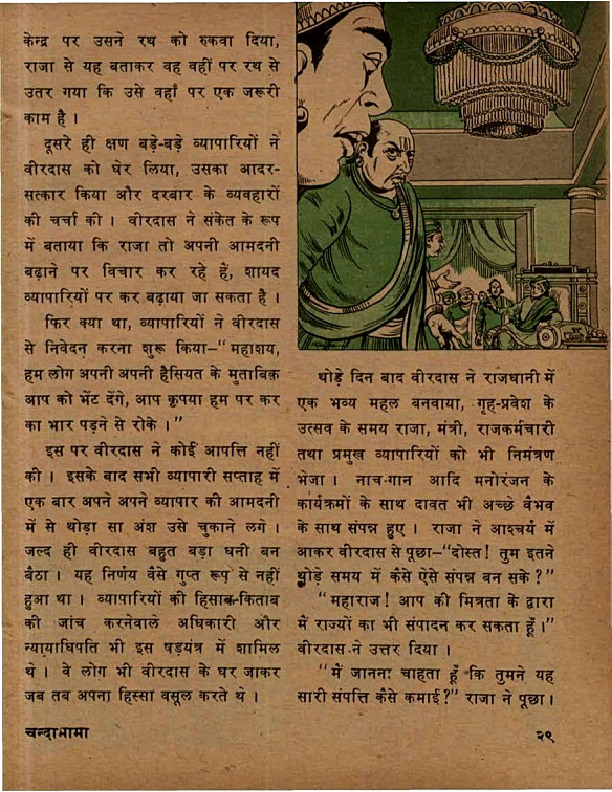 केन्द्र पर उसने रथ को रुकवा दिया,
राजा से यह बताकर वह वहीं पर रथ से
उतर गया कि उसे वहाँ पर एक जरूरी
काम है ।
दूसरे ही क्षण बड़े-बड़े व्यापारियों ने
वीरदास को घेर लिया, उसका आदर-
सत्कार किया और दरबार के व्यवहारों
की चर्चा की । वीरदास ने संकेत के रूप
में बताया कि राजा तो अपनी आमदनी
बढ़ाने पर विचार कर रहे हैं, शायद
व्यापारियों पर कर बढ़ाया जा सकता है ।
फिर क्या था, व्यापारियों ने वीरदास
से निवेदन करना शुरू किया–“ महाशय,
हम लोग अपनी अपनी हैसियत के मुताबिक़
आप को भेंट देंगे, आप कृपया हम पर कर
का भार पड़ने से रोके ।”
इस पर वीरदास ने कोई आपत्ति नहीं
की । इसके बाद सभी व्यापारी सप्ताह में
एक बार अपने अपने व्यापार की आमदनी
में से थोड़ा सा अंश उसे चुकाने लगे ।
जल्द ही वीरदास बहुत बड़ा धनी बन
बैठा । यह निर्णय वैसे गुप्त रूप से नहीं
हुआ था । व्यापारियों की हिसाब-किताब
की जांच करनेवाले अधिकारी और
न्यायाधिपति भी इस षड़यंत्र में शामिल
थे । वे लोग भी वीरदास के घर जाकर
जब तब अपना हिस्सा वसूल करते थे ।
थोड़े दिन बाद वीरदास ने राजधानी में
एक भव्य महल बनवाया, गृह-प्रवेश के
उत्सव के समय राजा, मंत्री, राजकर्मचारी
तथा प्रमुख व्यापारियों को भी निमंत्रण
भेजा । नाच-गान आदि मनोरंजन के
कार्यक्रमों के साथ दावत भी अच्छे वैभव
के साथ संपन्न हुए । राजा ने आश्चर्य में
आकर वीरदास से पूछा–“दोस्त! तुम इतने
थोड़े समय में कैसे ऐसे संपन्न बन सके ?”
“महाराज! आप की मित्रता के द्वारा
मैं राज्यों का भी संपादन कर सकता हूँ ।”
वीरदास ने उत्तर दिया ।
“मैं जानना चाहता हूँ कि तुमने यह
सारी संपत्ति कैसे कमाई?” राजा ने पूछा ।
चन्दामामा
२९